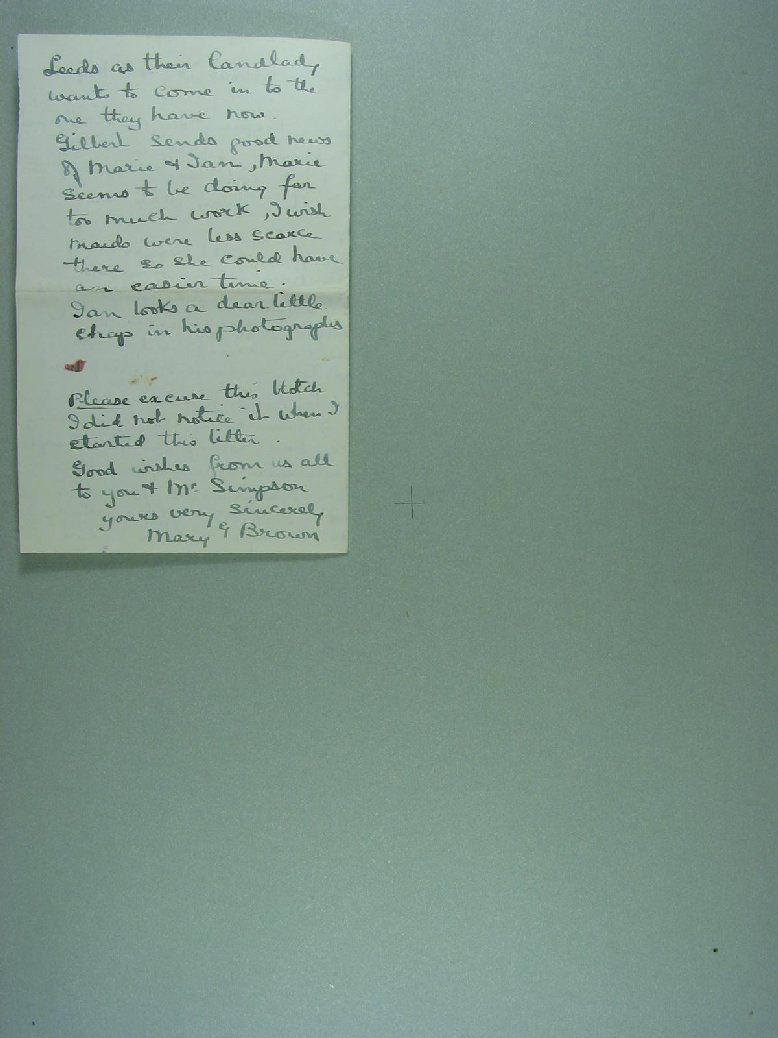 Leeds as their landlady
wants to come in to the
one they have now.
Gilbert sends good news
of Marie & Ian, Marie
seems to be doing far
too much work, I wish
maids were less scarce
there so she could have
an easier time.
Ian looks a dear little
chap in his photographs
Please excuse this blotch
I did not notice it when I
started this letter.
Good wishes from us all
to you & Mr Simpson
yours very sincerely
Mary G Brown